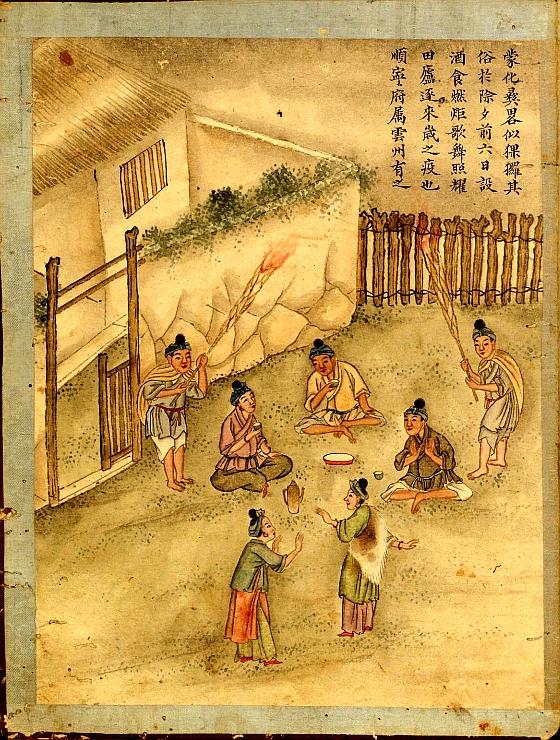 蒙化彝畧似猓玀其
俗於除夕前六日設
酒食燃炬歌舞照耀
田廬逐來歲之疫也
順寧府屬雲州有之